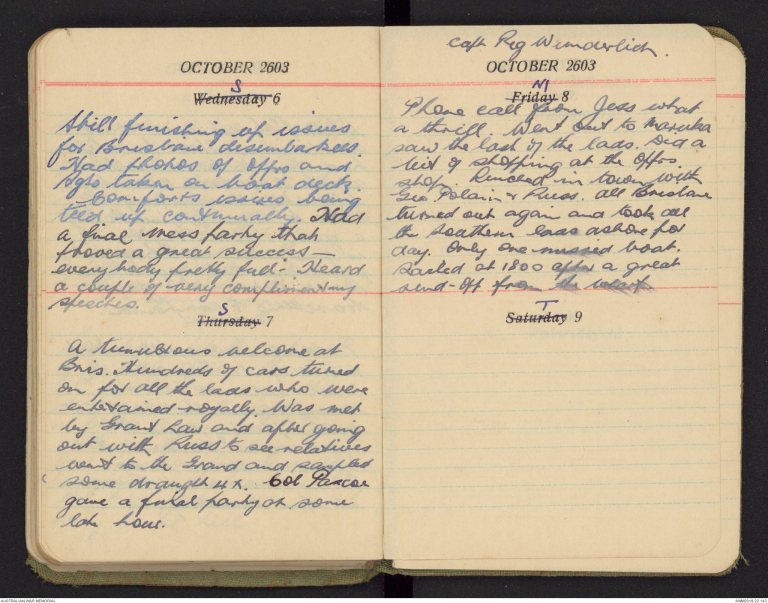 OCTOBER 2603
S
Wednesday 6
Still finishing up issues
for Brisbane disembarkees.
Had photos of offrs and
Sgts taken on boat deck.
Comforts issues being
teed up continually. Had
a final mess party that
proved a great success —
everybody pretty full - Heard
a couple of very complimentary
speeches.
S
Thursday 7
A tumultous welcome at
Bris. Hundreds of cars turned
on for all the lads who were
entertained royally. Was met
by Grant Law and after going
out with Russ to see relatives
went to the Grand and sampled
some draught 4x. Col Pascoe
gave a final party at some
late hour.
Capt Reg Wunderlich.
OCTOBER 2603
M
Friday 8
Phone call from Jess what
a thrill. Went out to
saw the last of the lads. Did a
bit of shopping at the offrs.
shop. Lunched in town with
Geo. & Russ. All Brisbane
turned out again and took all
the southern lads ashore for
day. Only one missed boat.
Sailed at 1800 after a great
send-off from the wharf.
T
Saturday 9
AUSTRALIAN WAR MEMORIAL